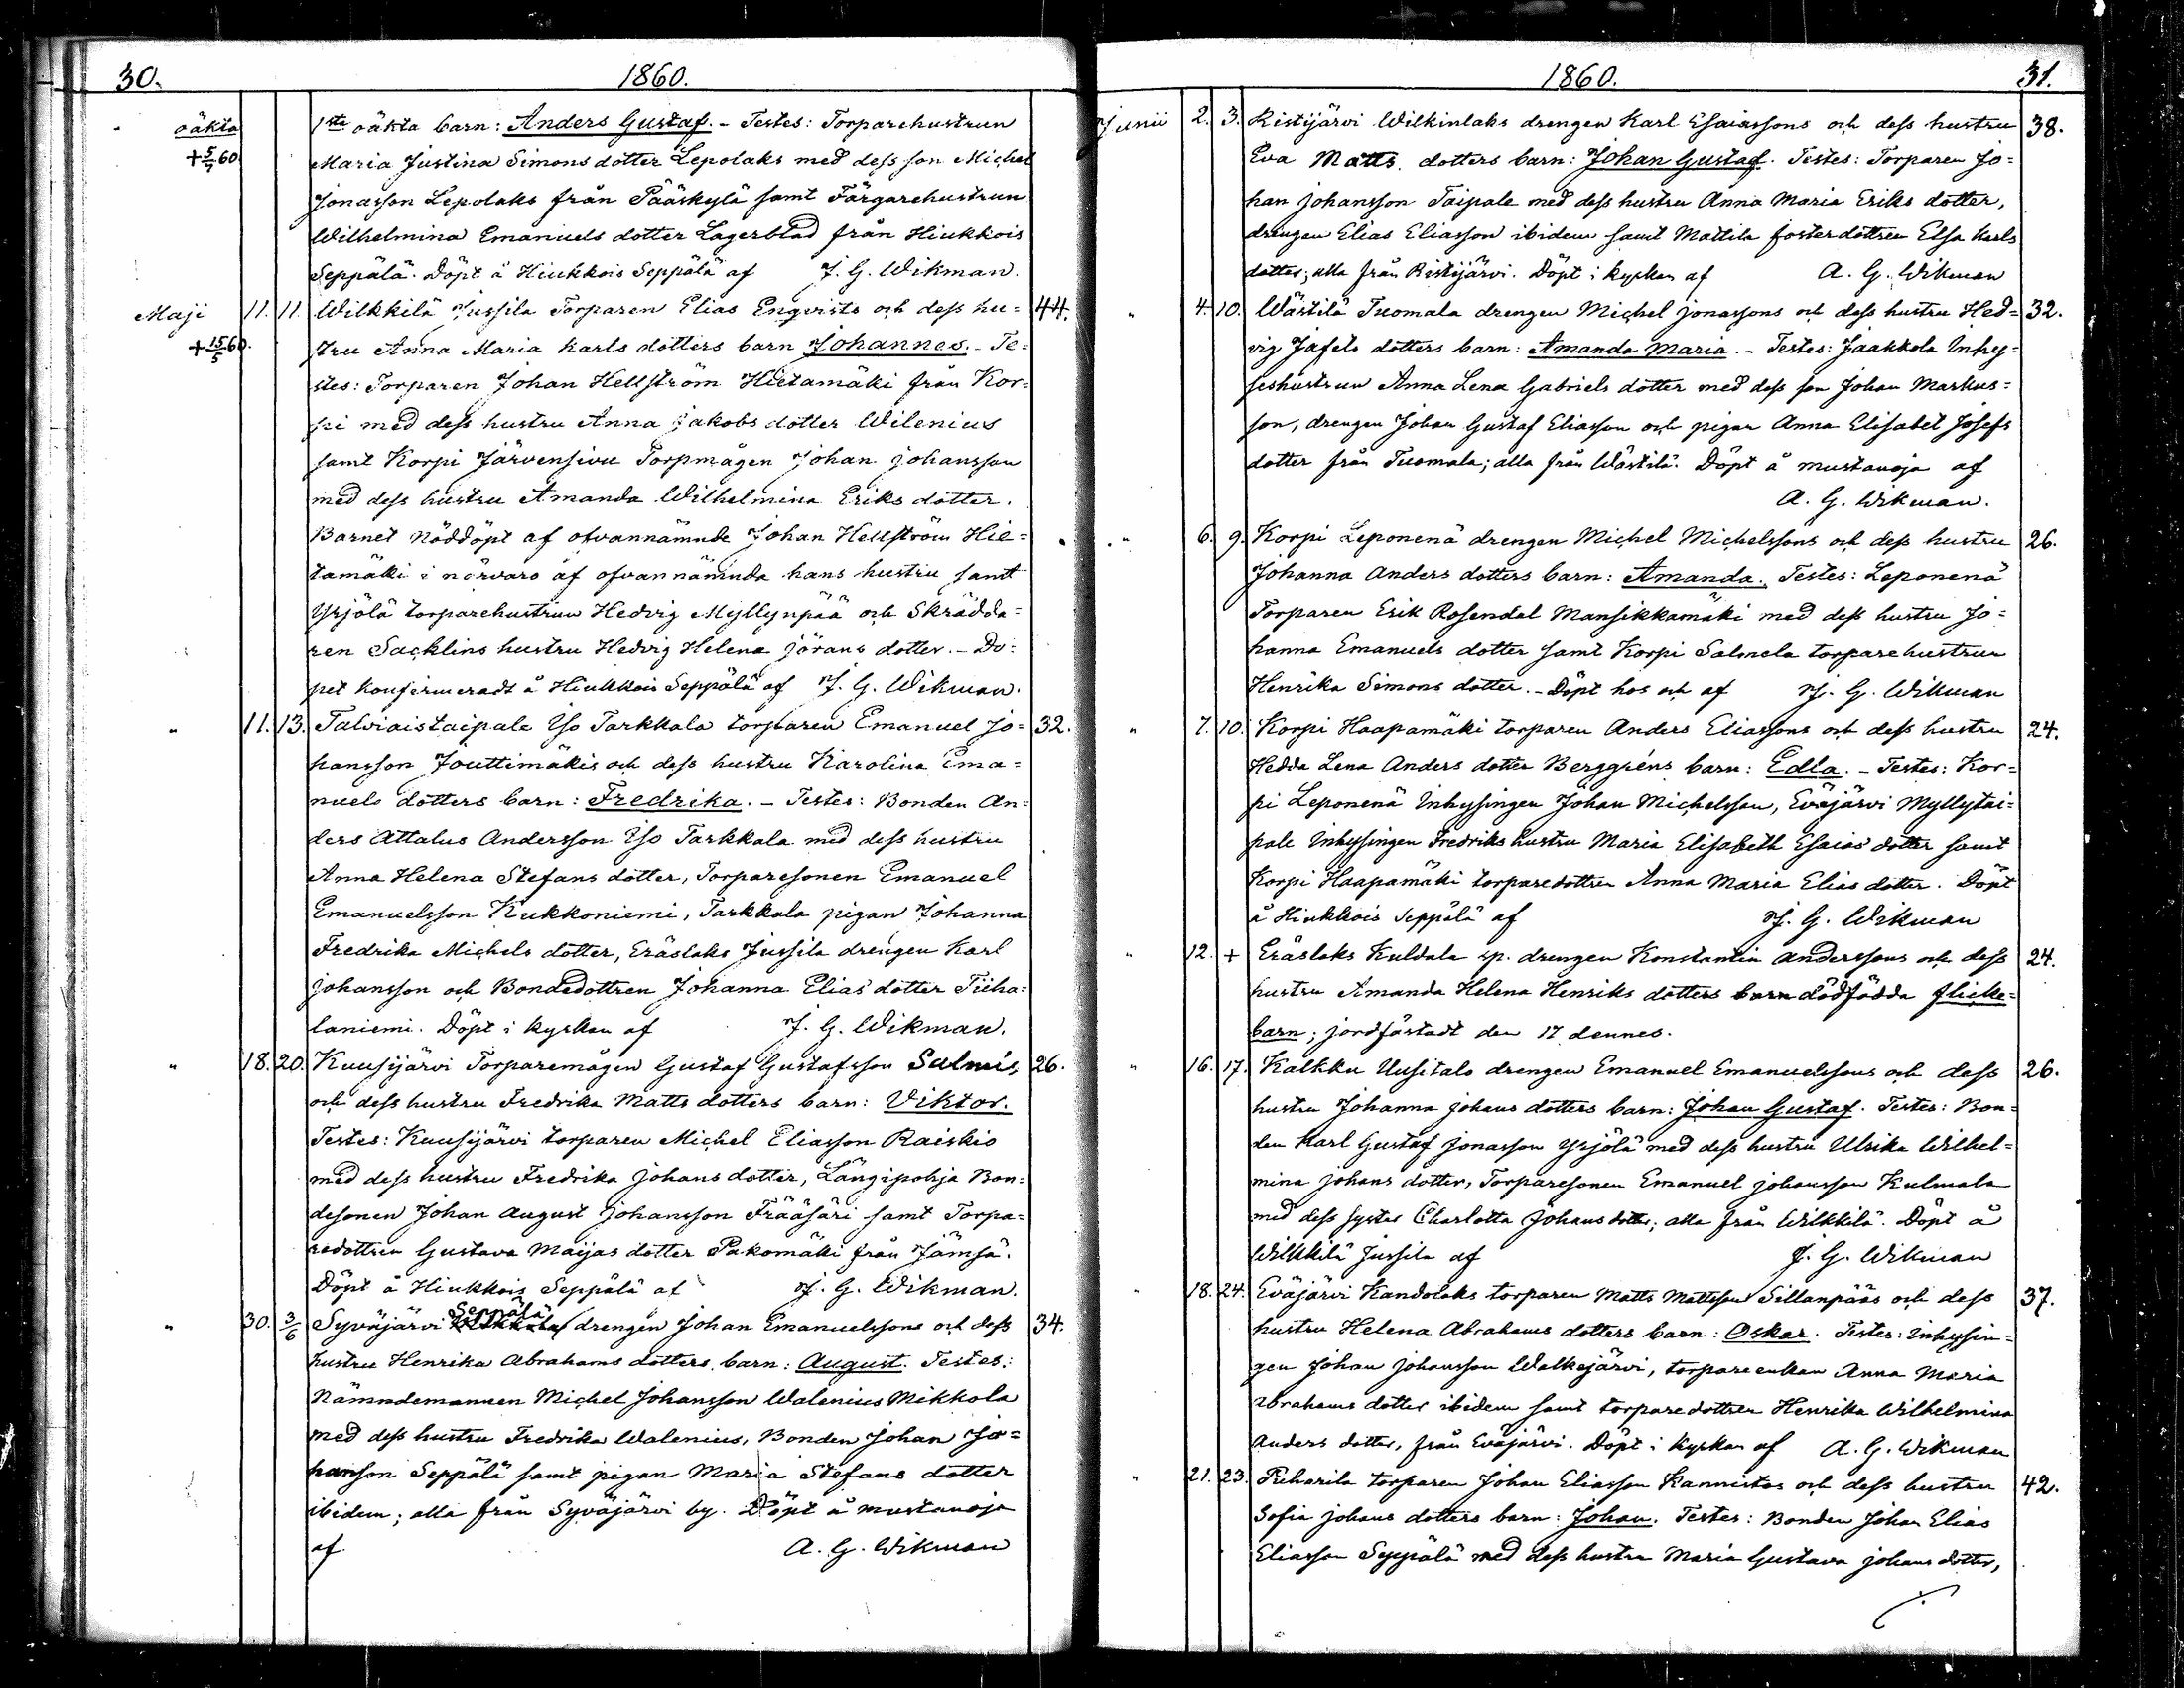 30. 1860.
oäkta 1sta oäkta barn: Anders Gustaf. - Testes: Torparehustrun
+ 5/7 60 Maria Justina Simons dotter Lepolaks med dess son Michel
Jonasson Lepolaks från Pääskylä samt Färgarehustrun
Wilhelmina Emanuels dotter Lagerblad från Hiukkois
Seppälä. Döpt å Hiukkois Seppälä af J. G. Wikman.
Maji 11. 11. Wilkkilä Jussila Torparen Elias Enqvists och dess hu= 44.
+ 15/5 60. stru Anna Maria Karls dotters barn Johannes. - Te=
stes: Torparen Johan Hellström Hietamäki från Kor=
pi med dess hustru Anna Jakobs dotter Wilenius
samt Korpi Järvensivu Torpmågen Johan Johansson
med dess hustru Amanda Wilhelmina Eriks dotter.
Barnet nöddöpt af ofvannämnde Johan Hellström Hie=
tamäki i närvaro af ofvannämnda hans hustru samt
Yrjölä torparehustrun Hedvig Myllynpää och Skrädda=
ren Sacklins hustru Hedvig Helena Jörans dotter. - Do=
pet konfirmeradt å Hiukkois Seppälä af J. G. Wikman.
" 11. 13. Talviaistaipale Iso Tarkkala torparen Emanuel Jo= 32.
hansson Jouttimäkis och dess hustru Karolina Ema=
nuels dotters barn: Fredrika. - Testes: Bonden An=
ders Attalus Andersson Iso Tarkkala med dess hustru
Anna Helena Stefans dotter, Torparesonen Emanuel
Emanuelsson Kukkoniemi, Tarkkala pigan Johanna
Fredrika Michels dotter, Eräslaks Jussila drengen Karl
Johansson och Bondedottren Johanna Elias dotter Tiiha=
laniemi. Döpt i kyrkan af J. G. Wikman.
" 18. 20. Kuusijärvi Torparemågen Gustaf Gustafsson Salmis, 26.
och dess hustru Fredrika Matts dotters barn: Viktor.
Testes: Kuusijärvi torparen Michel Eliasson Raiskio
med dess hustru Fredrika Johans dotter, Längipohja Bon=
desonen Johan August Johansson Frääsäri samt Torpa=
redottren Gustava Maijas dotter Pakomäki från Jämsä.
Döpt å Hiukkois Seppälä af J. G. Wikman.
Seppälä
" 30. 3/6 Syväjärvi drengen Johan Emanuelssons och dess 34.
hustru Henrika Abrahams dotters barn: August. Testes:
Nämndemannen Michel Johansson Walenius Mikkola
med dess hustru Fredrika Walenius, Bonden Johan Jo=
hanson Seppälä samt pigan Maria Stefans dotter
ibidem; alla från Syväjärvi by. Döpt å Mustanoja
af A. G. Wikman
1860. 31.
Junii 2. 3. Ristijärvi Wilkinlaks drengen Karl Esaiassons och dess hustru 38.
Eva Matts dotters barn: Johan Gustaf. Testes: Torparen Jo=
han Johansson Taipale med dess hustru Anna Maria Eriks dotter,
drengen Elias Eliasson ibidem samt Mattila fosterdottren Elsa Karls
dotter; alla från Ristijärvi. Döpt i kyrkan af A. G. Wikman
" 4. 10. Wästilä Tuomala drengen Michel Jonassons och dess hustru Hed= 32.
vig Jafets dotters barn: Amanda Maria. - Testes: Jaakkola Inhy=
seshustrun Anna Lena Gabriels dotter med dess son Johan Markus=
son, drengen Johan Gustaf Eliasson och pigan Anna Elisabet Josefs
dotter från Tuomala; alla från Wästilä. Döpt å Mustanoja af
A. G. Wikman.
" 6. 9. Korpi Leponenä drengen Michel Michelssons och dess hustru 26.
Johanna Anders dotters barn: Amanda. Testes: Leponenä
Torparen Erik Rosendal Mansikkamäki med dess hustru Jo=
hanna Emanuels dotter samt Korpi Salmela torparehustrun
Henrika Simons dotter. - Döpt hos och af J. G. Wikman
" 7. 10. Korpi Haapamäki torparen Anders Eliassons och dess hustru 24.
Hedda Lena Anders dotter Berggréns barn: Edla. - Testes: Kor=
pi Leponenä Inhysingen Johan Michelsson, Eväjärvi Myllytai=
pale Inhysingen Fredriks hustru Maria Elisabeth Esaias dotter samt
Korpi Haapamäki torparedottren Anna Maria Elias dotter. Döpt
å Hiukkois Seppälä af J. G. Wikman
" 12. + Eräslaks Kuldala sp. drengen Konstantin Anderssons och dess 24.
hustru Amanda Helena Henriks dotters barn dödfödda flicke=
barn; jordfästadt den 17 dennes.
" 16. 17. Kalkku Uusitalo drengen Emanuel Emanuelssons och dess 26.
hustru Johanna Johans dotters barn: Johan Gustaf. Testes: Bon=
den Karl Gustaf Jonasson Yrjölä med dess hustru Ulrika Wilhel=
mina Johans dotter, Torparesonen Emanuel Johansson Kulmala
med dess syster Charlotta Johans dotter; alla från Wilkkilä. Döpt å
Wilkkilä Jussila af J. G. Wikman
" 18. 24. Eväjärvi Kandolaks torparen Matts Mattsson Sillanpääs och dess 37.
hustru Helena Abrahams dotters barn: Oskar. Testes: Inhysin=
gen Johan Johansson Walkejärvi, torpareenkan Anna Maria
Abrahams dotter ibidem samt torparedottren Henrika Wilhelmina
Anders dotter, från Eväjärvi. Döpt i kyrkan af A. G. Wikman
" 21. 23. Puharila torparen Johan Eliasson Kannistos och dess hustru 42.
Sofia Johans dotters barn: Johan. Testes: Bonden Johan Elias
Eliasson Seppälä med dess hustru Maria Gustava Johans dotter,